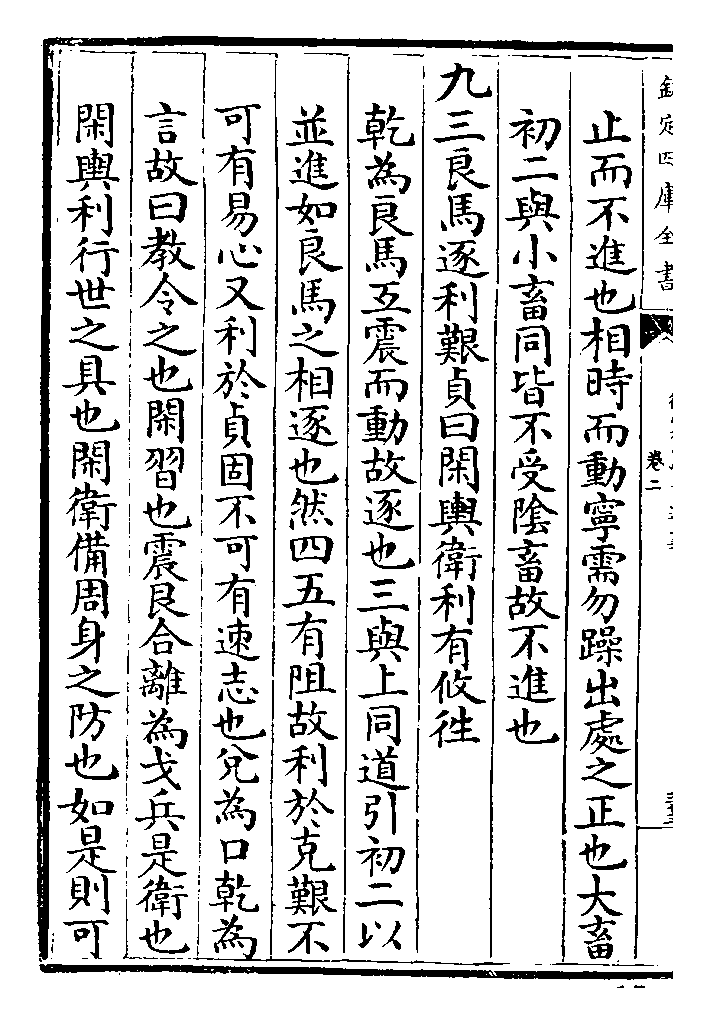 欽定四庫全書
卷二
止而不進也相時而動寧需勿躁出處之正也大畜
初二與小畜同皆不受陰畜故不進也
九三良馬逐利艱貞曰閑輿衛利有攸往
乾為良馬互震而動故逐也三與上同道引初二以
並進如良馬之相逐也然四五有阻故利於克艱不
可有易心又利於貞固不可有速志也兌為口乾為
言故曰教令之也閑習也震艮合離為戈兵是衛也
閑輿利行世之具也閑衛備周身之防也如是則可